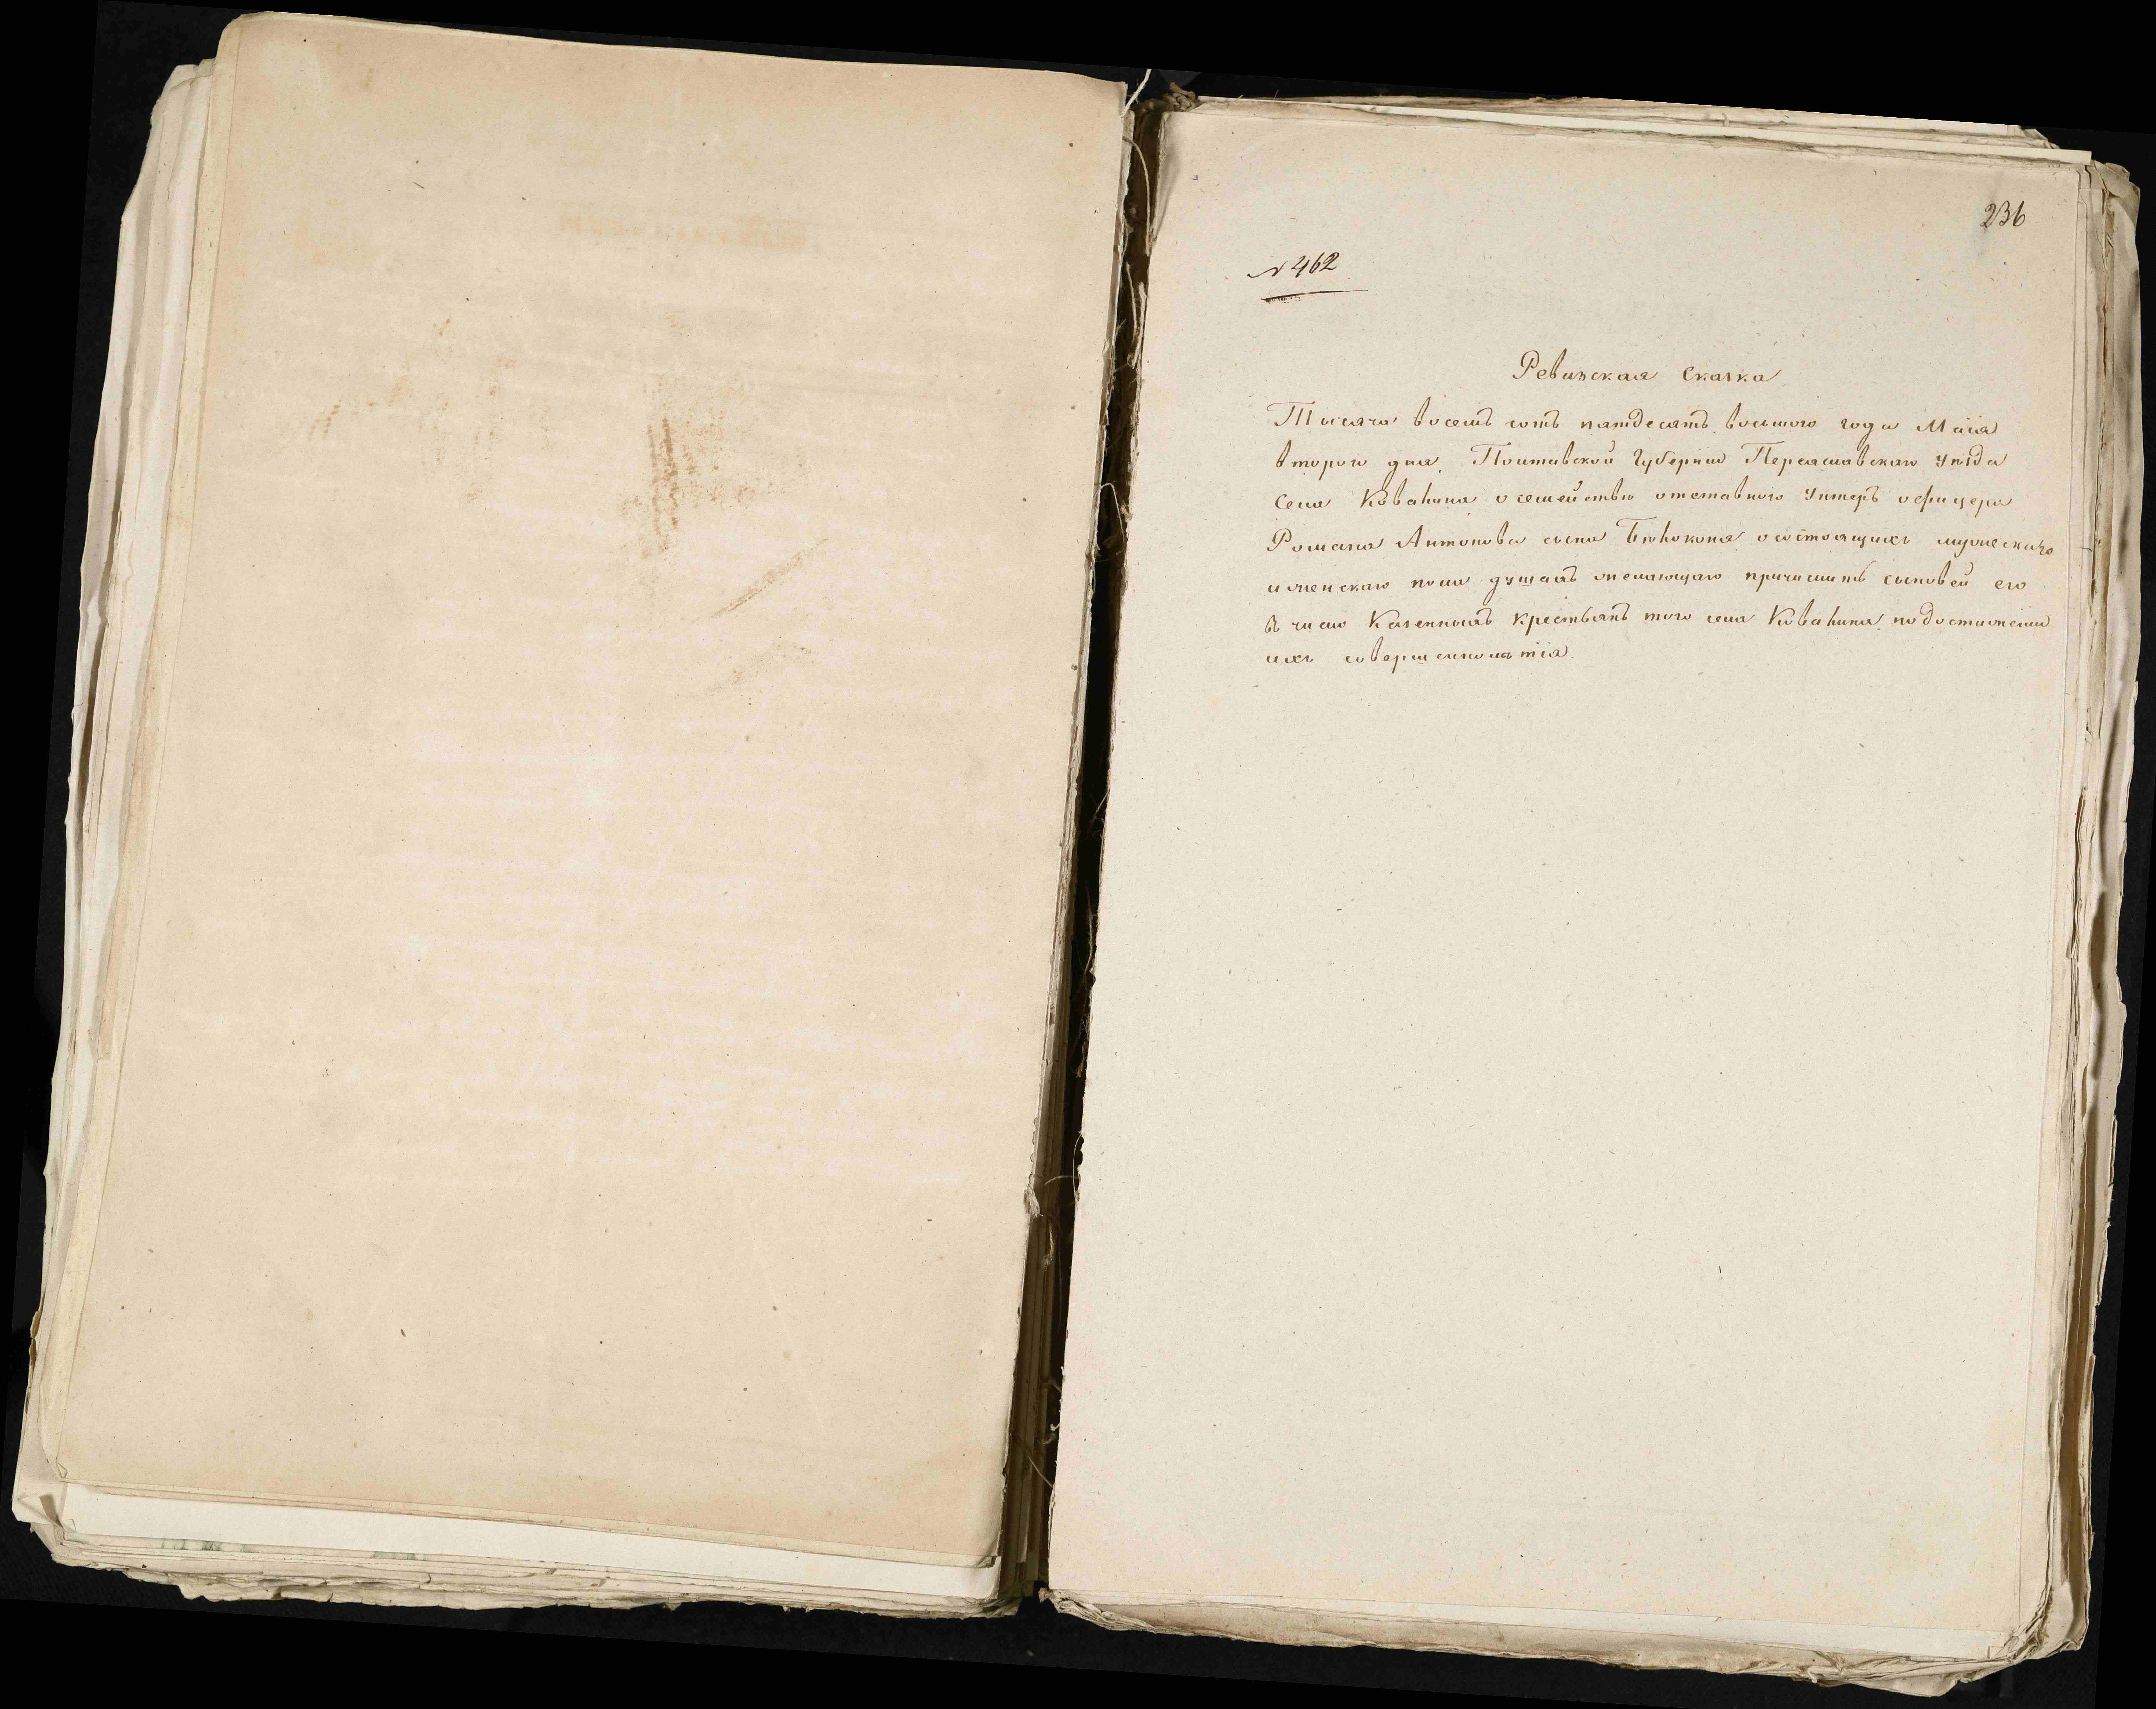 236
№ 462
Ревизская Сказка
Тысяча восемъ сотъ пятдесятъ восьмого года Маія
второго дня, Полтавской Губерніи Переяславскаго уѣзда
Села Ковалина, о семействѣ отставного Унтеръ офицера
Романа Антонова сына Бѣлокона, о состоящихъ мужескаго
и женскаго пола душахъ, желающаго причислить сыновей его
въ число Казенныхъ Крестьянъ того села Ковалина, по достиженіи
ихъ совершеннолѣтія.